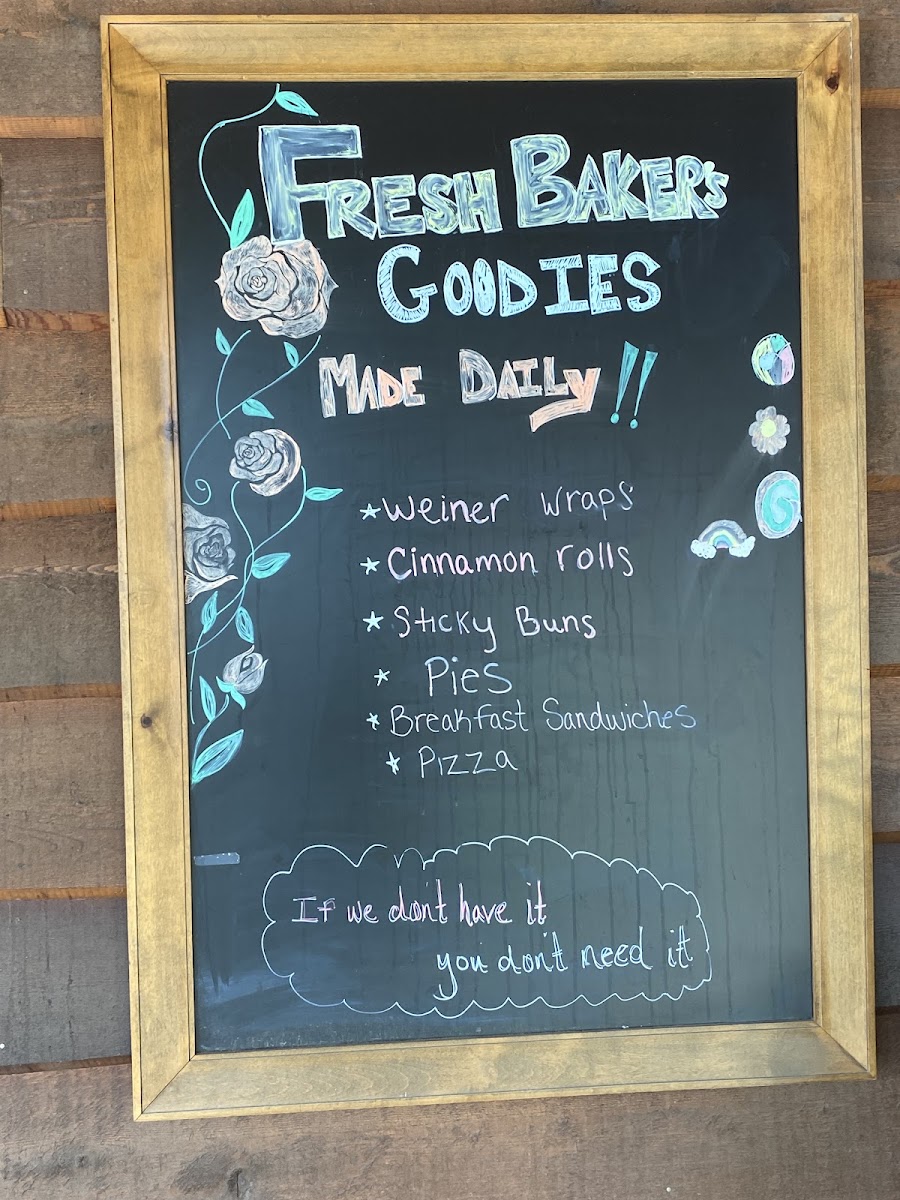 FRESH BAKER'S
GOODIES
MADE DAILY!!
*Weiner Wraps
*Cinnamon rolls
*Sticky Buns
* Pies
*Breakfast Sandwiches
* Pizza
If we don't have it
you don't need it